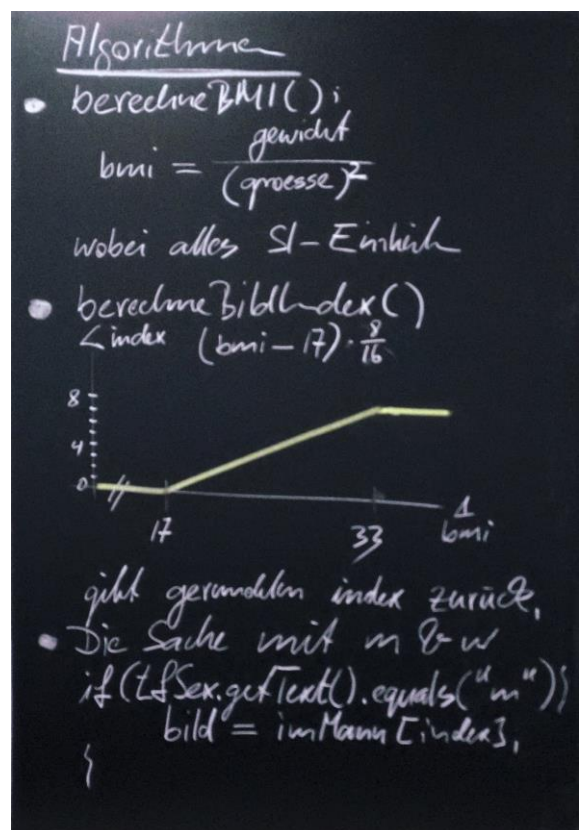 Algorithmen
berechneBMI();
bmi = gewicht / (groesse)²
wobei alles SI-Einheit
berechneBildIndex()
index (bmi - 17) · 8/16
8
4
0
17 33 bmi
gibt gerundeten index zurück,
Die Sache mit m & w
if (tfSex.getText().equals("m")){
bild = imMann [index],
}